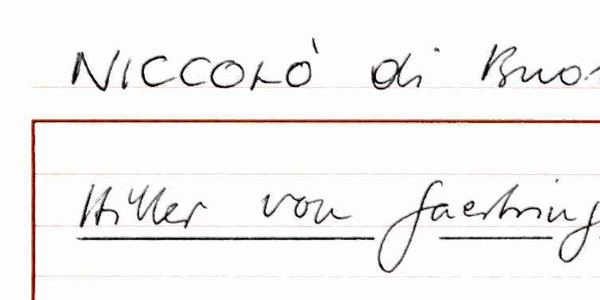 NICCOLÒ di Buo
Hiller von Gaertring